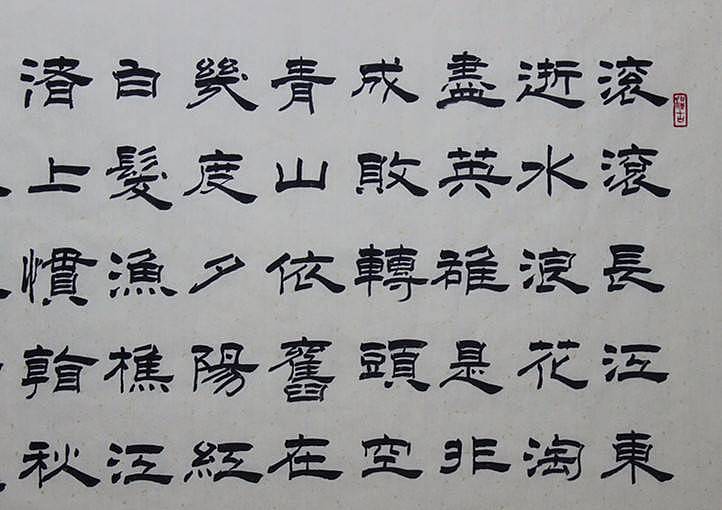 滾滾長江東
逝水浪花淘
盡英雄是非
成敗轉頭空
青山依舊在
幾度夕陽紅
白髮漁樵江
渚上慣看秋